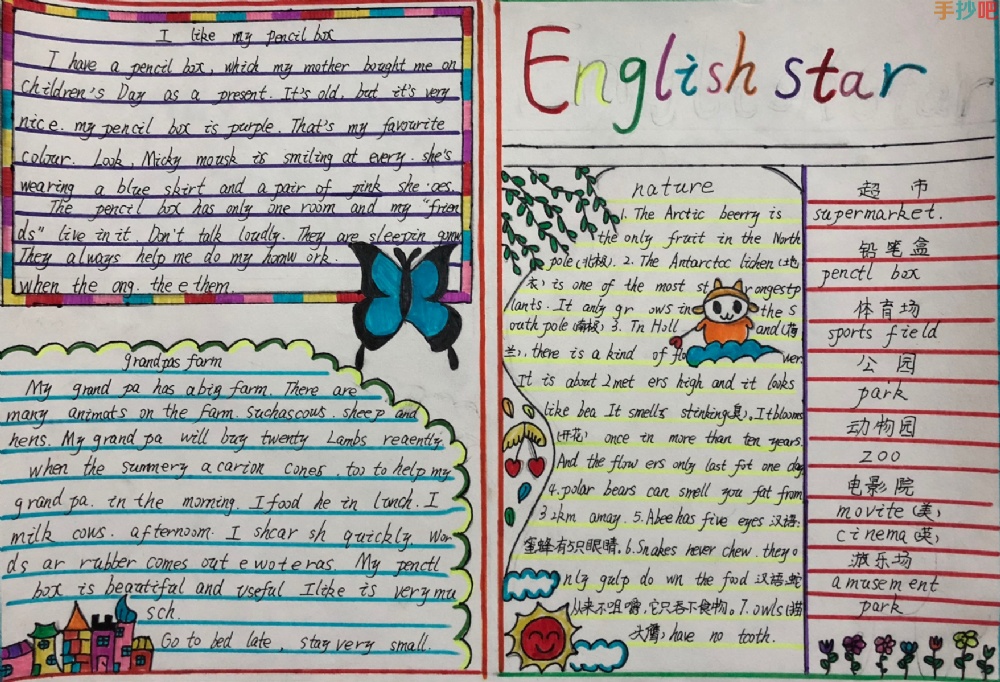 手抄吧
I like my pencil box
I have a pencil box, which my mother bought me on
children's Day as a present. It's old, but it's very
nice. my pencil box is purple. That's my favourite
colour. Look, Micky mousk is smiling at every. she's
wearing a blue skirt and a pair of pink she aes.
The pencil box has only one room and my "frien
ds" live in it. Don't talk loudly. They are sleepin
They always help me do my homw ork.
when the ong. the e them.
grandpas farm
My grand pa has a big farm. There are
many animats on the farm. suchascows. sheep and
hens. My grand pa will buy twenty Lambs reaently.
when the summery a carion cones. too to help my
grand pa. in the morning. I food he in lunch. I
milk cows. afternoom. I shcar sh quickly. Wor
ds ar rubber comes out e wo te ras. My penctl
box is beautiful and useful Ilike is very mu
sch.
Go to bed late, stay very small.
English star
nature
1. The Arctic beerry is
the only fruit in the North
pole (北极). 2. The Antarctcc lichen (地
衣) is one of the most st r ongestp
lants. It only gr ows in the s
outh pole (南极) 3. Tn Holl and (荷
兰), there is a kind of flo wer.
It is about 2 met ers high and it looks
like bea It smells stinking(臭). It blooms
(开花) once in more than ten years.
And the flow ers only last fot one day
4. polar bears can smell you fat from
3 2km amay. 5. Abee has five eyes 汉语:
蜜蜂有5只眼睛. 6. Snakes never chew. they o
nly gulp do wn the food 汉语:蛇
从来不咀嚼,它只吞下食物。7. owls (猫
头鹰) have no tooth.
超市
supermarket.
铅笔盒
penctl box
体育场
sports field
公园
park
动物园
zoo
电影院
movite (美)
cinema (英)
游乐场
amusement
park